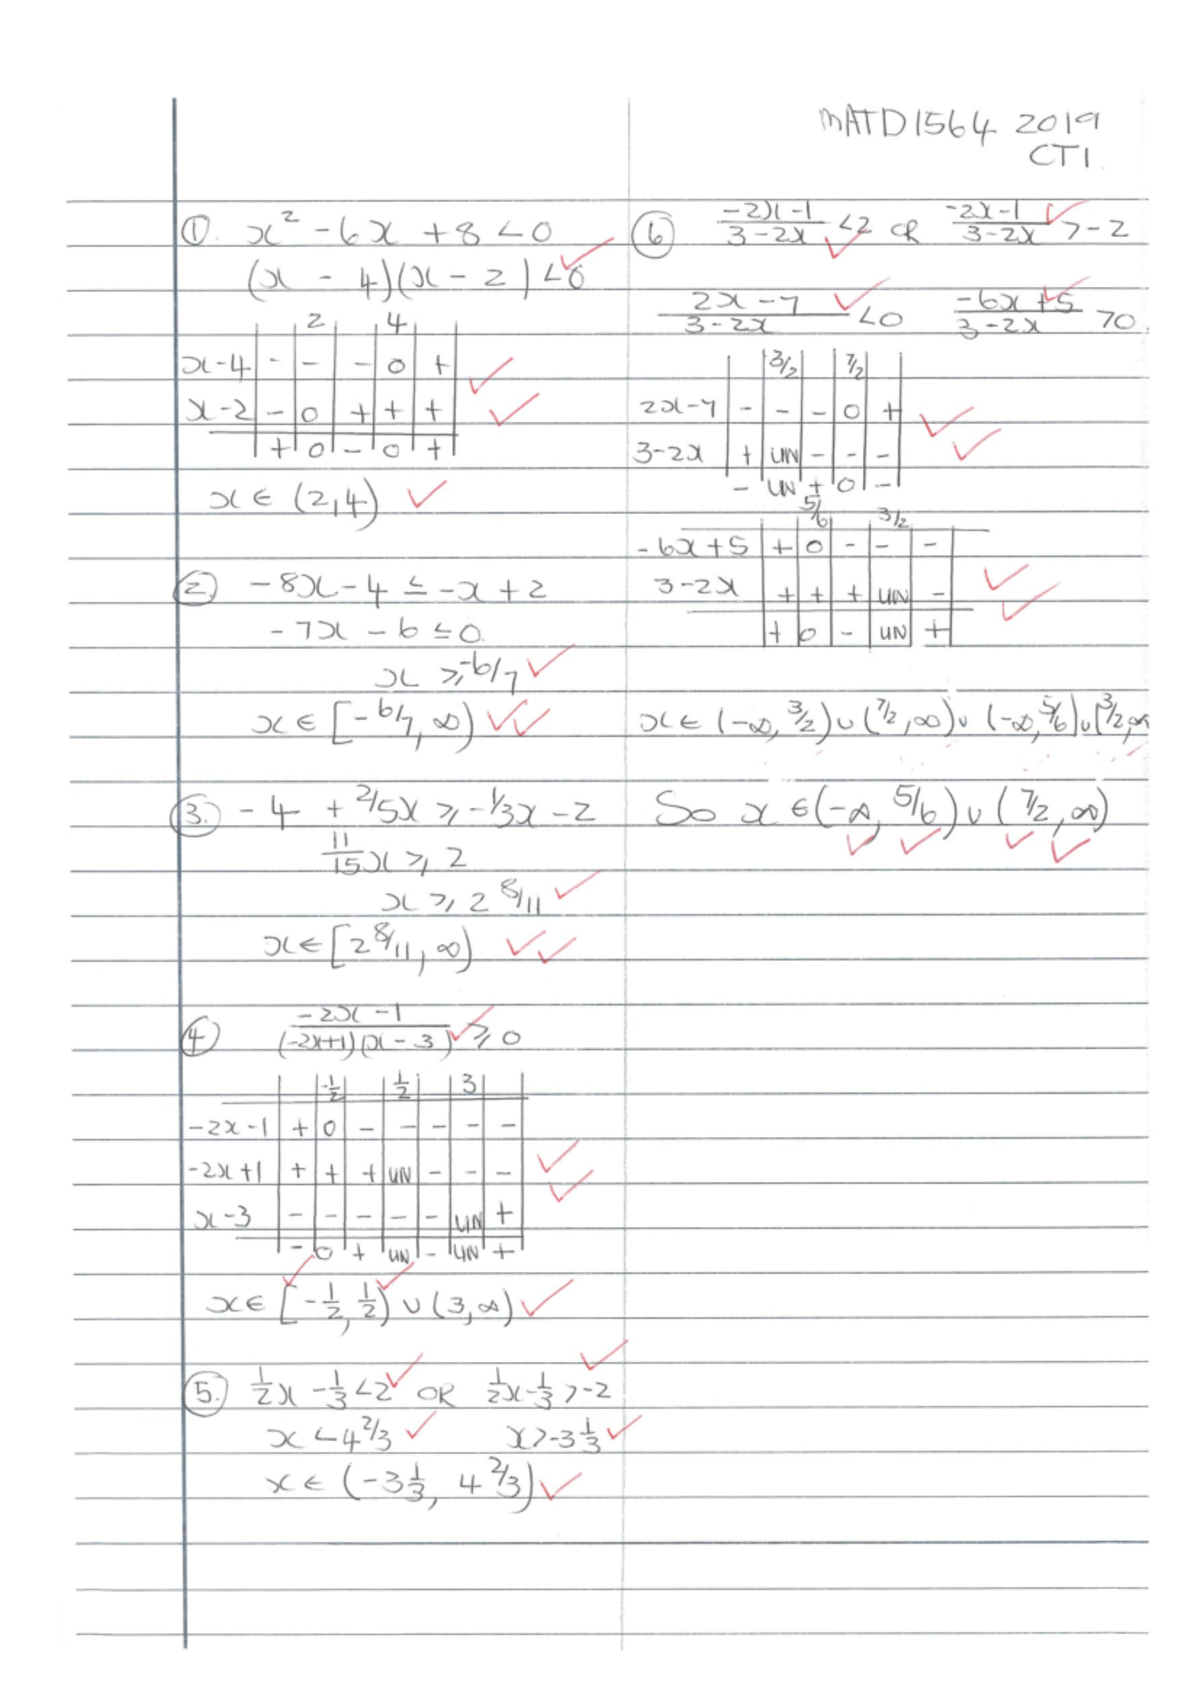 MATD1564 2019
CT1.
①. x² - 6x + 8 < 0
(x - 4)(x - 2) < 0
2 4
x-4 - - - 0 +
x-2 - 0 + + +
+ 0 - 0 +
x ∈ (2,4)
② -8x - 4 ≤ -x + 2
-7x - 6 ≤ 0.
x ≥ -6/7
x ∈ [-6/7, ∞)
③. -4 + 2/5x ≥ -1/3x - 2
11/15 x ≥ 2
x ≥ 2 8/11
x ∈ [2 8/11, ∞)
④ (-2x-1)/((-2x+1)(x-3)) ≥ 0
-1/2 1/2 3
-2x-1 + 0 - - - - -
-2x+1 + + + UN - - -
x-3 - - - - - UN +
- 0 + UN - UN +
x ∈ [-1/2, 1/2) ∪ (3, ∞)
⑤. 1/2x - 1/3 < 2 OR 1/2x - 1/3 > -2
x < 4 2/3 x > -3 1/3
x ∈ (-3 1/3, 4 2/3)
⑥ (-2x-1)/(3-2x) < 2 OR (-2x-1)/(3-2x) > -2
(2x-7)/(3-2x) < 0 (-6x+5)/(3-2x) > 0.
3/2 7/2
2x-7 - - - 0 +
3-2x + UN - - -
- UN + 0 -
5/6 3/2
-6x+5 + 0 - - -
3-2x + + + UN -
+ 0 - UN +
x ∈ (-∞, 3/2) ∪ (7/2, ∞) ∪ (-∞, 5/6) ∪ (3/2, ∞
So x ∈ (-∞, 5/6) ∪ (7/2, ∞)